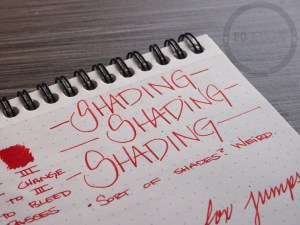 -SHADING-
-SHADING-
-SHADING-
III
- CHANGE
- TO III
- TO BLEED
PASSES
"SORT OF SHADES? WEIRD.
fox jumps